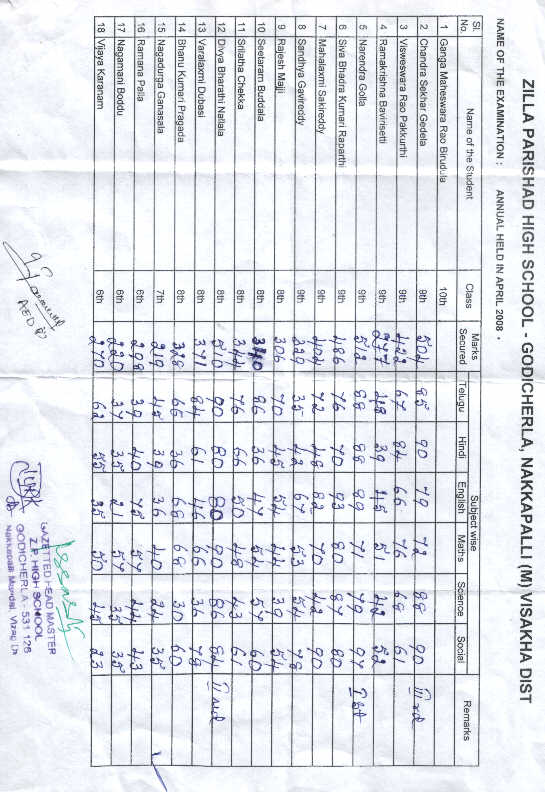 ZILLA PARISHAD HIGH SCHOOL - GODICHERLA, NAKKAPALLI (M) VISAKHA DIST
NAME OF THE EXAMINATION : ANNUAL HELD IN APRIL 2008 -
Sl. No. Name of the Student Class Marks Secured Subject wise Remarks
Telugu Hindi English Maths Science Social
1 Ganga Maheswara Rao Birudula 10th
2 Chandra Sekhar Gedela 9th 504 85 90 79 72 88 90 III rd
3 Visweswara Rao Pakkurthi 9th 422 67 84 66 76 68 61
4 Ramakrishna Bavirisetti 9th 247 48 39 45 51 42 52
5 Narendra Golla 9th 522 88 88 89 71 79 97 I st
6 Siva Bhadra Kumari Raparthi 9th 486 76 70 93 80 87 80
7 Mahalaxmi Sakireddy 9th 404 72 48 82 70 42 90
8 Sandhya Gavireddy 9th 329 35 42 67 53 54 78
9 Rajesh Majji 8th 306 70 45 54 44 39 54
10 Seetaram Buddala 8th 340 86 36 47 54 57 60
11 Srilatha Chekka 8th 344 76 66 50 48 43 61
12 Divya Bharathi Nallala 8th 510 90 80 80 90 86 84 II nd
13 Varalaxmi Dubasi 8th 371 84 61 46 66 36 78
14 Bhanu Kumari Pragada 8th 328 66 36 68 68 30 60
15 Nagadurga Ganasala 7th 219 45 39 36 40 24 35
16 Ramana Palla 6th 298 39 40 78 54 44 43
17 Nagamani Boddu 6th 220 37 35 21 57 35 35
18 Vijaya Karanam 6th 270 62 55 35 50 45 23
GAZETTED HEAD MASTER
Z.P. HIGH SCHOOL
GODICHERLA - 531 126
Nakkapalli Mandal, Vizag Dt